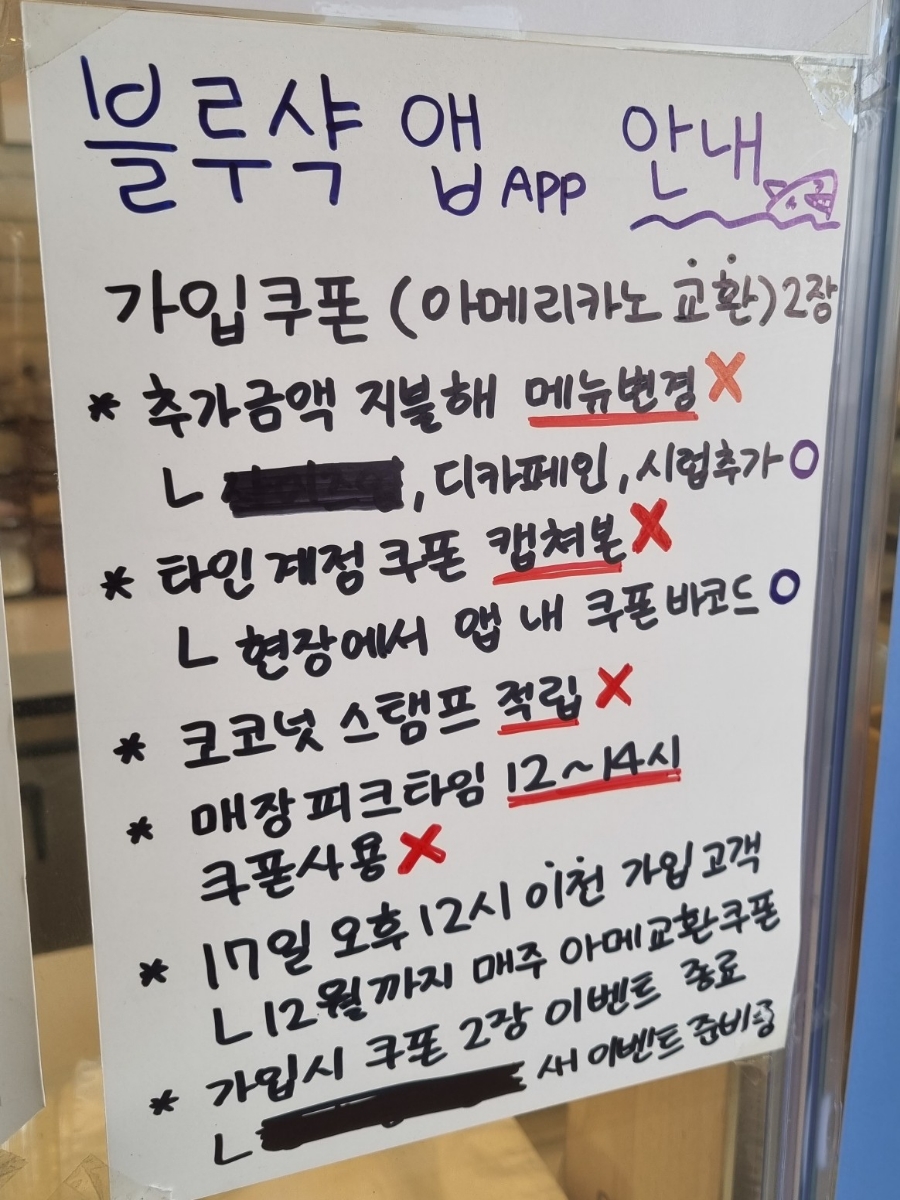 블루샥 앱 APP 안내
가입쿠폰 (아메리카노 교환) 2장
* 추가금액 지불해 메뉴변경 X
ㄴ , 디카페인, 시럽추가 O
* 타인 계정 쿠폰 캡쳐본 X
ㄴ 현장에서 앱 내 쿠폰 바코드 O
* 코코넛 스탬프 적립 X
* 매장 피크타임 12~14시
쿠폰사용 X
* 17일 오후 12시 이전 가입 고객
ㄴ 12월까지 매주 아메교환쿠폰
* 가입시 쿠폰 2장 이벤트 종료
ㄴ 새 이벤트 준비중